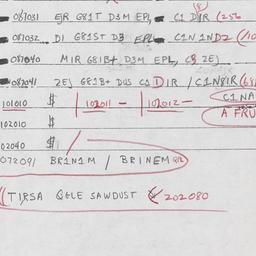 087031 EJR G81T D3M EPL C1 DIR (256
087032 DI G81ST D3 EPL C1N1ND2 (10
087040 MIR G81B+ D3M EPL, C8 2EJ
087041 2EJ G81B+ DUS C1 DIR / C1N8IR (68
101010 $ 102011 - 102012 - C1NA
102010 $ A FRU
02040 $
072091 BR1N1M / BR1NEM
TIRSA GELE SAWDUST 202080